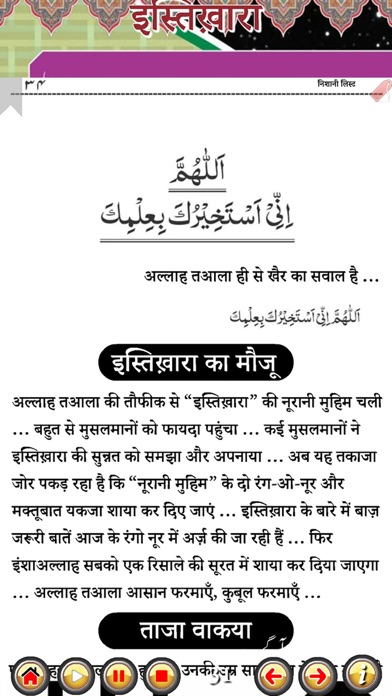 इस्तिख़ारा
۳۴
निशानी लिस्ट
اَللّٰهُمَّ
اِنِّىْ اَسْتَخِيْرُكَ بِعِلْمِكَ
अल्लाह तआला ही से खैर का सवाल है ...
اَللّٰهُمَّ اِنِّىْ اَسْتَخِيْرُكَ بِعِلْمِكَ
इस्तिख़ारा का मौजू
अल्लाह तआला की तौफीक से “इस्तिख़ारा” की नूरानी मुहिम चली
... बहुत से मुसलमानों को फायदा पहुंचा ... कई मुसलमानों ने
इस्तिख़ारा की सुन्नत को समझा और अपनाया ... अब यह तकाजा
जोर पकड़ रहा है कि “नूरानी मुहिम” के दो रंग-ओ-नूर और
मक्तूबात यकजा शाया कर दिए जाएं ... इस्तिख़ारा के बारे में बाज़
जरूरी बातें आज के रंगो नूर में अर्ज़ की जा रही हैं ... फिर
इंशाअल्लाह सबको एक रिसाले की सूरत में शाया कर दिया जाएगा
... अल्लाह तआला आसान फरमाएँ, कुबूल फरमाएँ ...
ताजा वाकया
उनकी उम्र